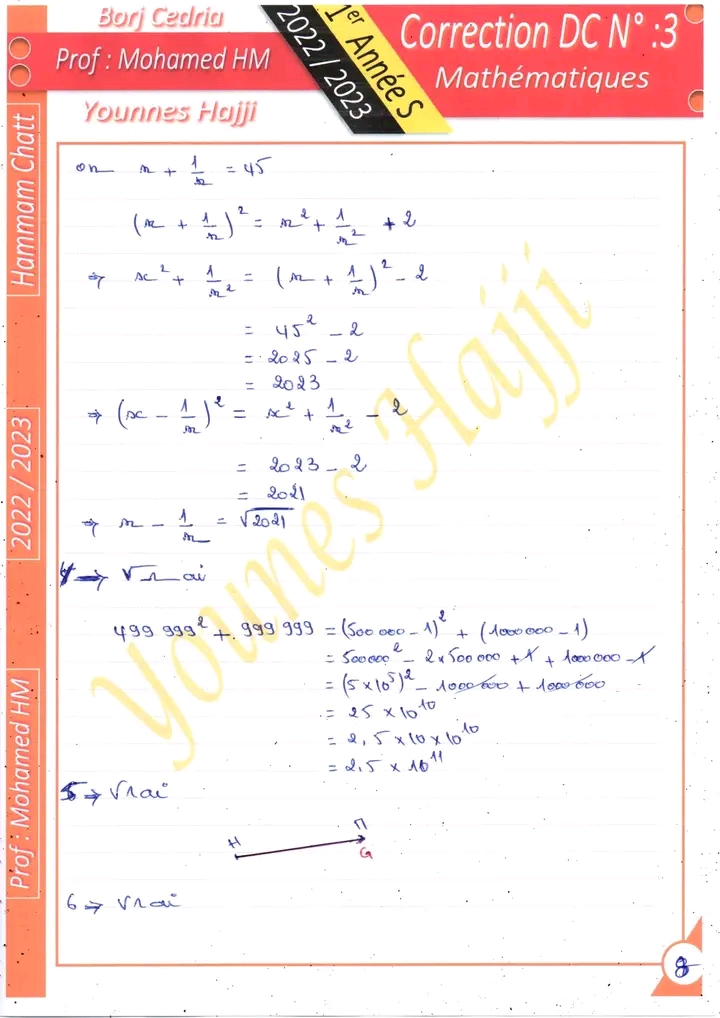 Borj Cedria
Prof : Mohamed HM
Younnes Hajji
1er Année S
2022 / 2023
Correction DC N° :3
Mathématiques
Hammam Chatt
2022 / 2023
Prof : Mohamed HM
on x + 1/x = 45
(x + 1/x)² = x² + 1/x² + 2
⇒ x² + 1/x² = (x + 1/x)² - 2
= 45² - 2
= 2025 - 2
= 2023
⇒ (x - 1/x)² = x² + 1/x² - 2
= 2023 - 2
= 2021
⇒ x - 1/x = √2021
4 → Vrai
499 999² + 999 999 = (500 000 - 1)² + (1000 000 - 1)
= 500 000² - 2 x 500 000 + 1 + 1000 000 - 1
= (5 x 10⁵)² - 1000 000 + 1000 000
= 25 x 10¹⁰
= 2,5 x 10 x 10¹⁰
= 2,5 x 10¹¹
5 → Vrai
H
M
G
6 → Vrai
Younes Hajji
8